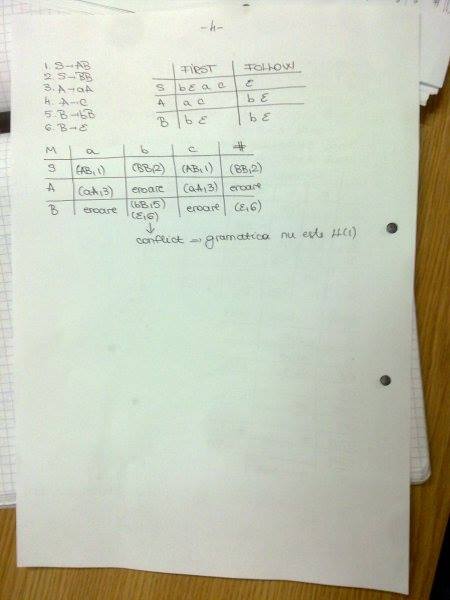 -4-
1. S→AB
2. S→BB
3. A→aA
4. A→C
5. B→bB
6. B→ε
FIRST FOLLOW
S b ε a c ε
A a c b ε
B b ε b ε
M a b c #
S (AB,1) (BB,2) (AB,1) (BB,2)
A (aA,3) eroare (aA,3) eroare
B eroare (bB,5) eroare (ε,6)
(ε,6)
↓
conflict => gramatica nu este LL(1)